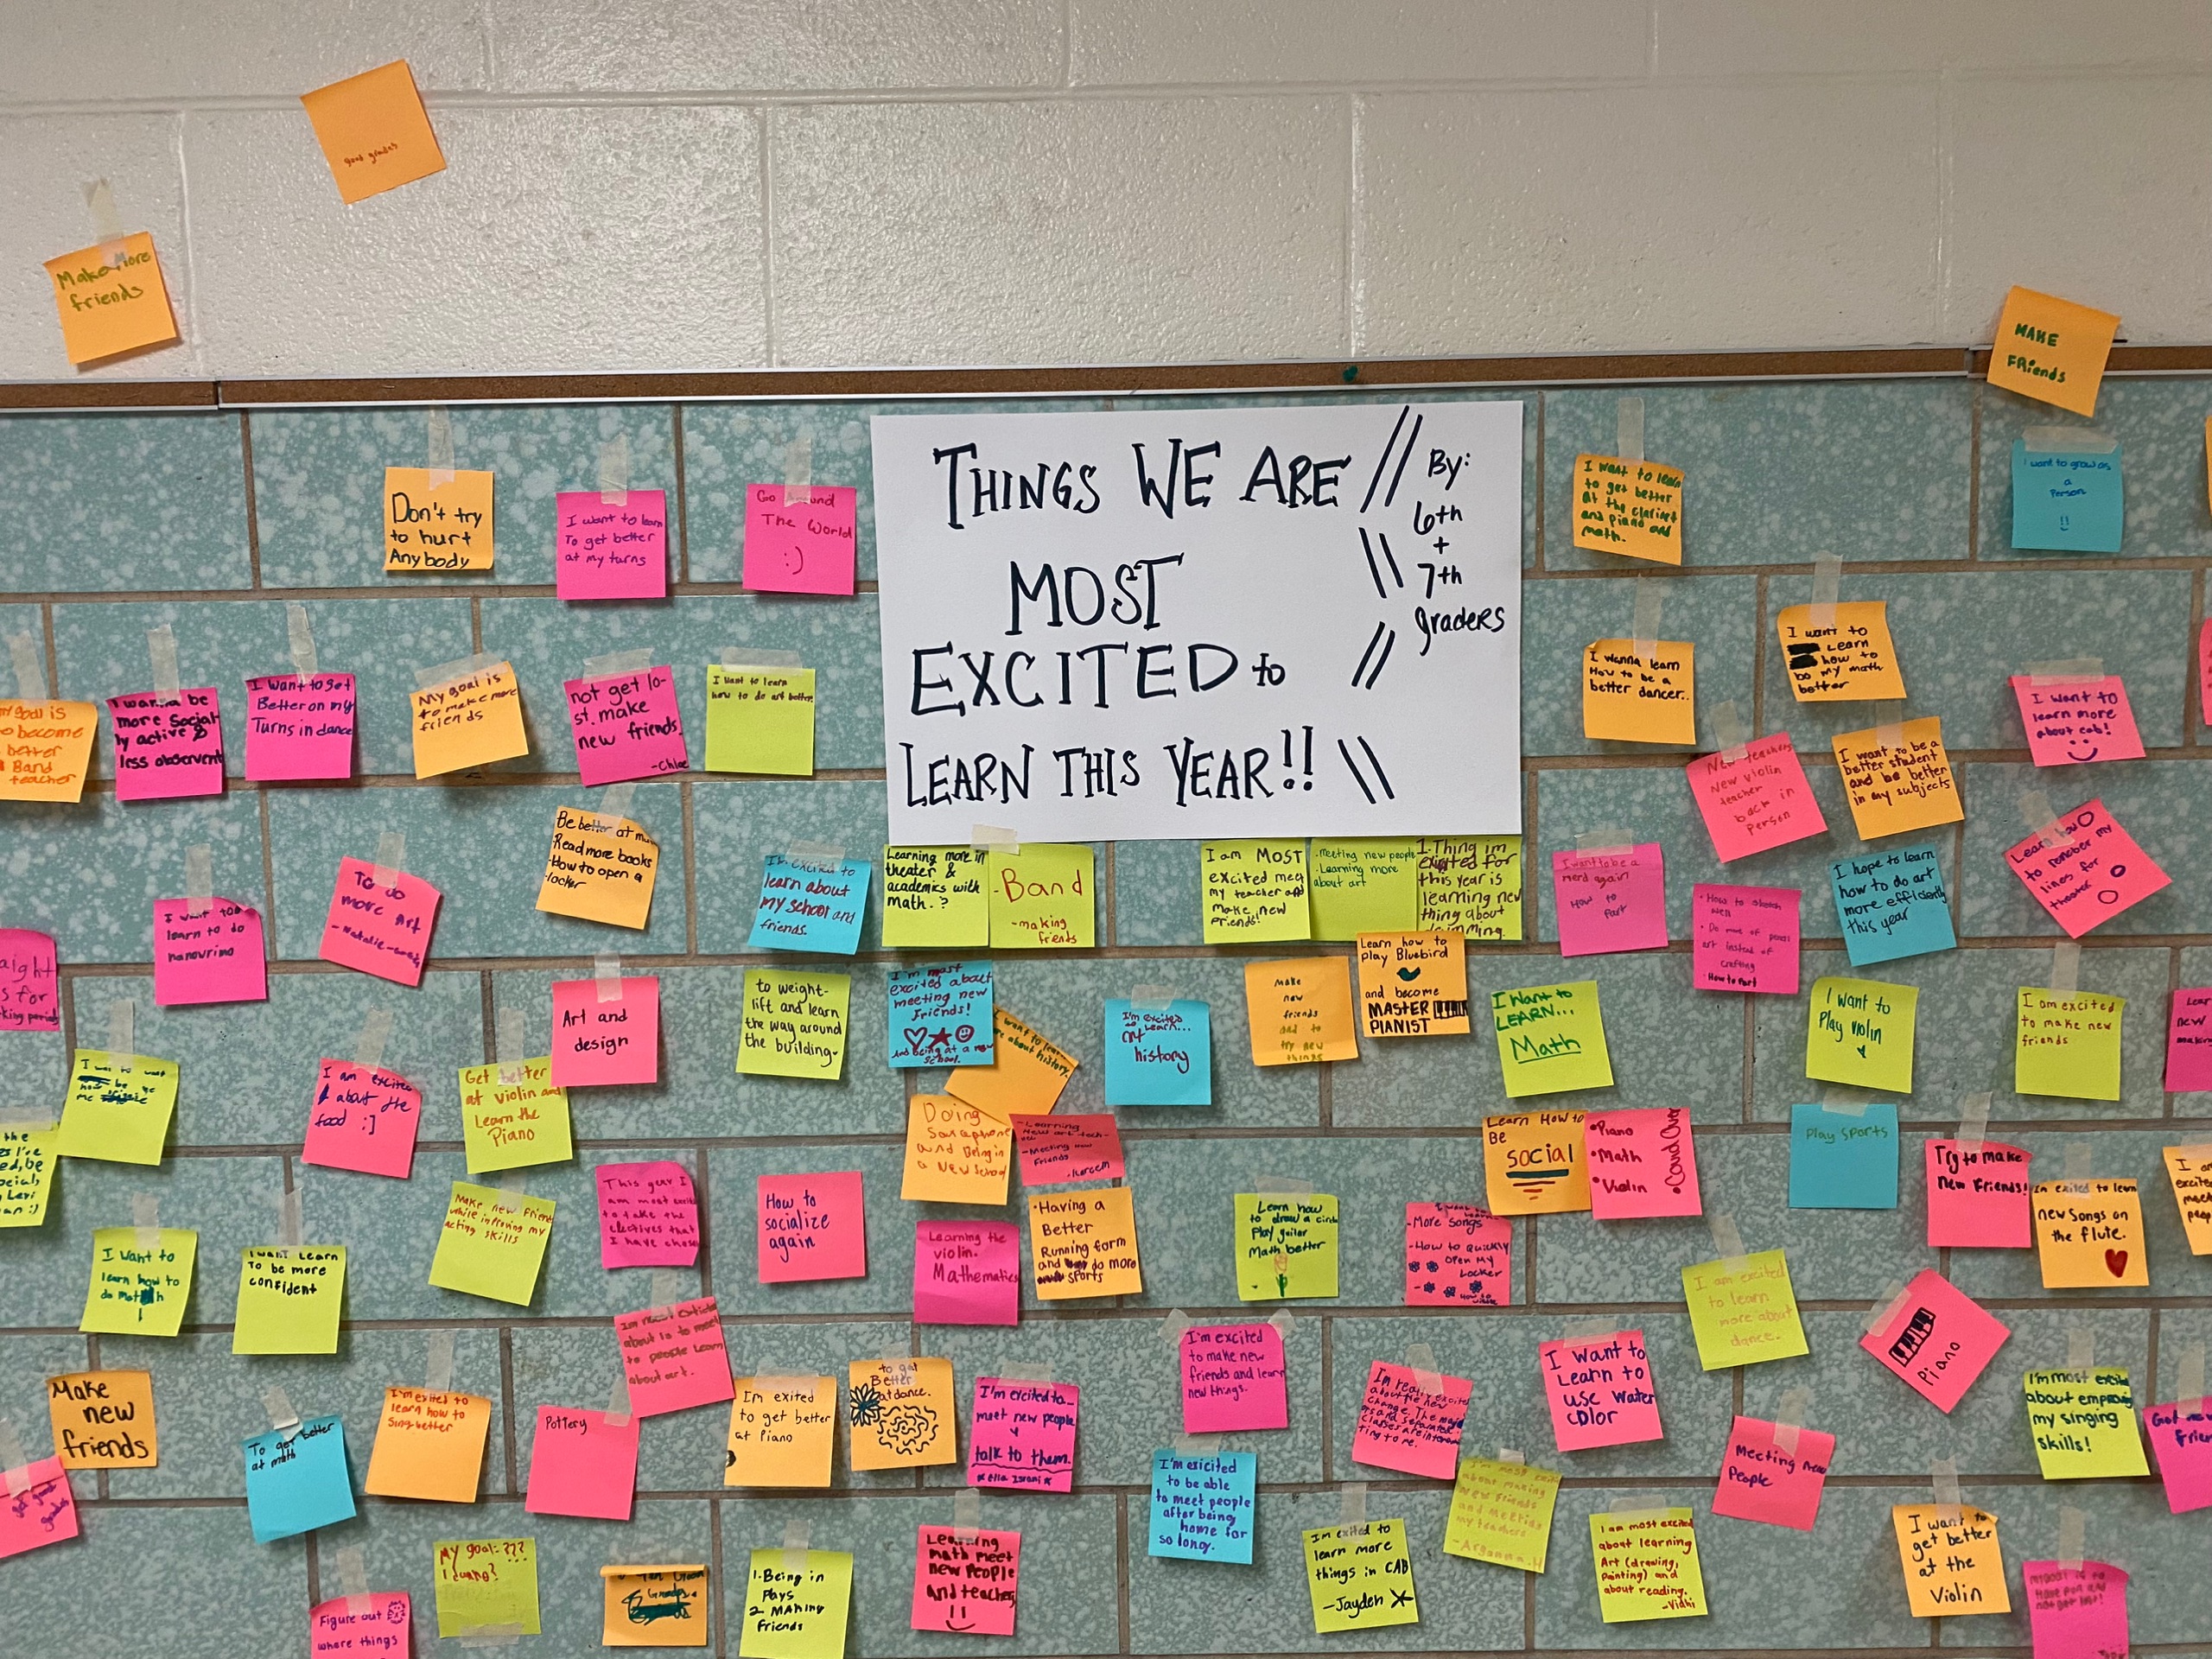 good grades
Make More
friends
MAKE
FRiends
THINGS WE ARE
MOST
EXCITED to
LEARN THIS YEAR!!
By:
6th
+
7th
graders
Don't try
to hurt
Anybody
I want to learn
To get better
at my turns
Go Around
The World
:)
I want to learn
to get better
at the clarinet
and piano and
math.
I want to grow as
a
Person
!!
my goal is
to become
better
Band
teacher
I wanna be
more social
ly active &
less observent
I Want to get
Better on my
Turns in dance
My goal is
to make more
friends
not get lo-
st. make
new friends.
-Chloe
I want to learn
how to do art better.
I wanna learn
How to be a
better dancer..
I want to
Learn
how to
do my math
better
I want to
learn more
about cab!
New teachers
New violin
teacher
back in
Person
I want to be a
better student
and be better
in my subjects
Learn how
to
lines for
theater
I want to
learn to do
To do
more Art
Be better at
Read more books
-How to open a
locker
I'm excited to
learn about
my school and
friends.
Learning more in
theater &
academics with
math. ?
-Band
-making
friends
I am MOST
excited meet
my teacher and
make new
friends!
·Meeting new people
·Learning more
about art
1. Thing im
excited for
this year is
learning new
thing about
I want to be a
nerd again
How to
fart
• How to sketch
well
art instead of
crafting
• How to fart
I hope to learn
how to do art
more efficiently
this year
Art and
design
to weight-
lift and learn
the way around
the building.
I'm most
excited about
meeting new
friends!
And being at a new
school.
I want to learn
about history.
I'm excited
to learn...
history
make
new
friends
and to
try new
things
Learn how to
play Bluebird
and become
MASTER
PIANIST
I Want to
LEARN...
Math
I want to
Play violin
I am excited
to make new
friends
I am excited
about the
food :]
Get better
at violin and
Learn the
Piano
Doing
Saxophone
and Being in
a New School
-Learning
New art tech-
-Meeting new
Friends
Learn How to
BE
SOCIAL
•Piano
•Math
•Violin
Play sports
Try to make
new Friends!
Im exited to learn
new Songs on
the flute.
I want to
learn how to
do math
I want Learn
To be more
confident
Make new friends
while improving my
acting skills
This year I
am most excited
to take the
electives that
I have chosen
How to
socialize
again
Learning the
violin.
Mathematics
·Having a
Better
Running form
and do more
sports
Learn how
to draw a circle
Play guitar
Math better
-More songs
-How to quickly
open my
Locker
I am excited
to learn
more about
dance.
Piano
Make
new
friends
To get better
at math
I'm exited to
learn how to
sing better
Pottery
about is to meet
to people learn
about art.
Im exited
to get better
at Piano
to get
Better
at dance.
I'm excited to
meet new people
talk to them.
I'm excited
to make new
friends and learn
new things.
I'm really excited
about the new
change. The
and separated
classes are interes
ting to me.
I want to
Learn to
use water
color
Meeting new
People
I'm most excited
about emproving
my singing
skills!
get good
grades
My goal: ???
Figure out
where things
1. Being in
Plays
2. MAking
friends
Learning
math meet
new People
And teachers
I'm exicited
to be able
to meet people
after being
home for
so long.
Im exited to
learn more
things in CAB
-Jayden
I'm most excited
about making
new friends
and meeting
my teachers
I am most excited
about learning
Art (drawing,
painting) and
about reading.
-Vidhi
I want to
get better
at the
Violin